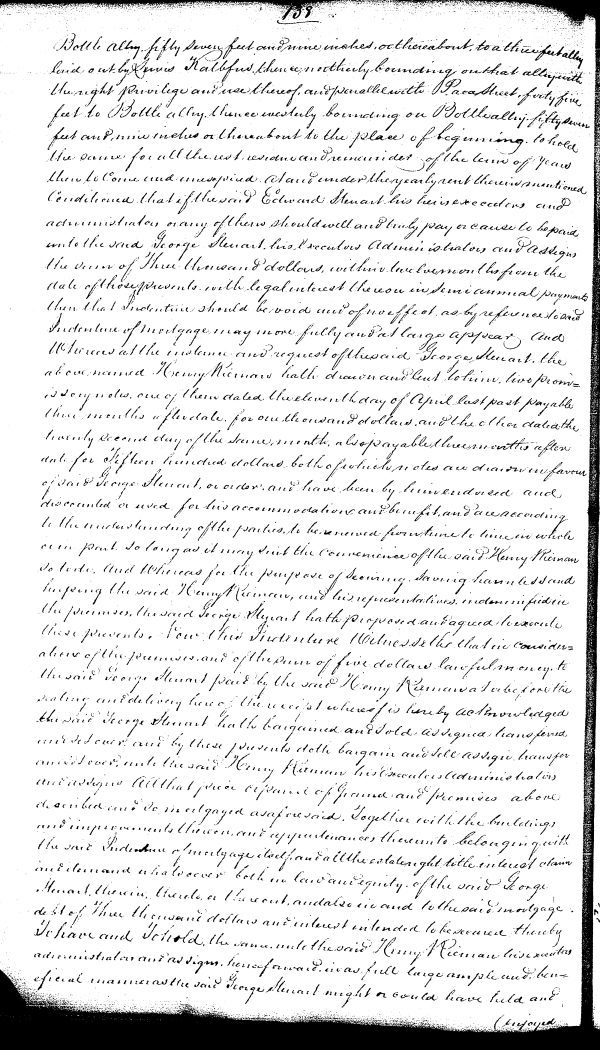 138
Bottle alley, fifty seven feet and nine inches, or thereabout, to a three feet alley
laid out by Lewis thence northerly bounding on that alley with
the right privilege and use thereof and parallel with Paca Street, forty five
feet to Bottle alley, thence westerly bounding on Bottle alley fifty seven
feet and nine inches or thereabout to the place of beginning. to hold
the same for all the rest residue and remainder of the term of years
then to come and unexpired at and under the yearly rent therein mentioned
Conditioned that if the said Edward Steuart, his heirs executors and
administrators or any of them should well and truly pay or cause to be paid
unto the said George Steuart, his Executors Administrators and Assigns
the sum of Three thousand dollars, within twelve months from the
date of those presents with legal interest thereon in semi annual payments
then that Indenture should be void and of no effect as by reference to said
Indenture of mortgage may more fully and at large appear, And
Whereas at the instance and request of the said George Steuart, the
above named Henry Rieman hath drawn and lent to him, two prom-
issory notes, one of them dated the eleventh day of April last past payable
three months after date, for one thousand dollars, and the other dated the
twenty second day of the same month, also payable three months after
date for Fifteen hundred dollars, both of which notes are drawn in favour
of said George Steuart, or order, and have been by him endorsed and
discounted or used for his accommodation and benefit, and are according
to the understanding of the parties, to be renewed from time to time in whole
or in part so long as it may suit the convenience of the said Henry Rieman
so to do. And Whereas for the purpose of Securing, Saving harmless and
keeping the said Henry Rieman, and his representatives, indemnified in
the premises, the said George Steuart hath proposed and agreed to execute
these presents. Now this Indenture Witnesseth that in consider-
ation of the premises, and of the sum of five dollars lawful money, to
the said George Steuart paid by the said Henry Rieman at or before the
sealing and delivery hereof the receipt whereof is hereby acknowledged
the said George Steuart hath bargained and sold assigned transferred
and set over, and by these presents doth bargain and sell assign, transfer
and set over, unto the said Henry Rieman his Executors Administrators
and assigns All that piece or parcel of Ground and premises above
described and so mortgaged as aforesaid. Together with the buildings
and improvements thereon, and appurtenances thereunto belonging with
the said Indenture of mortgage itself, and all the estate right, title interest claim
and demand whatsoever both in law and equity of the said George
Steuart, therein, thereto, or thereout, and also in and to the said mortgage
debt of Three thousand dollars and interest intended to be secured thereby
To have and To hold, the same, unto the said Henry Rieman his executors
administrators and assigns, henceforward, in as, full large ample and ben-
eficial manner as the said George Steuart might or could have held and
(enjoyed